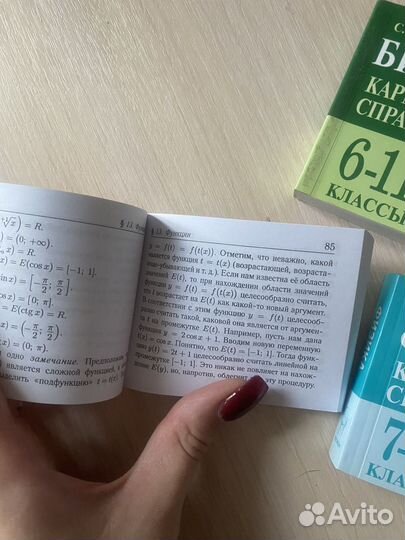 ⁿ⁺√x) = R.
) = (0; +∞).
x) = R.
x) = E(cos x) = [−1; 1].
sin x) = [−π/2, π/2]
cos x) = [0; π].
x) = E(ctg x) = R.
x) = (−π/2, π/2).
x) = (0; π).
одно замечание. Предположим
является сложной функцией,
делить «подфункцию» t = t(x)
§ 13. Функции
85
y = f(t) = f(t(x)). Отметим, что неважно, какой
является функция t = t(x) (возрастающей, возраста-
юще-убывающей и т. д.). Если нам известна её область
значений E(t), то при нахождении области значений
функции y = f(t) = f(t(x)) целесообразно считать,
что t возрастает на E(t) как какой-то новый аргумент.
В соответствии с этим функцию y = f(t) целесооб-
разно считать такой, какова она является от аргумен-
та t на промежутке E(t). Например, пусть нам дана
функция y = 2 cos x + 1. Вводим новую переменную
t(x) = cos x. Понятно, что E(t) = [−1; 1]. Тогда функ-
цию y(t) = 2t + 1 целесообразно считать линейной на
промежутке [−1; 1]. Это никак не повлияет на нахож-
дение E(y), но, напротив, облегчит эту процедуру.
С
КАР
СПРА
6-11
КЛАССЫ
С
К
СП
7-
КЛА
Avito